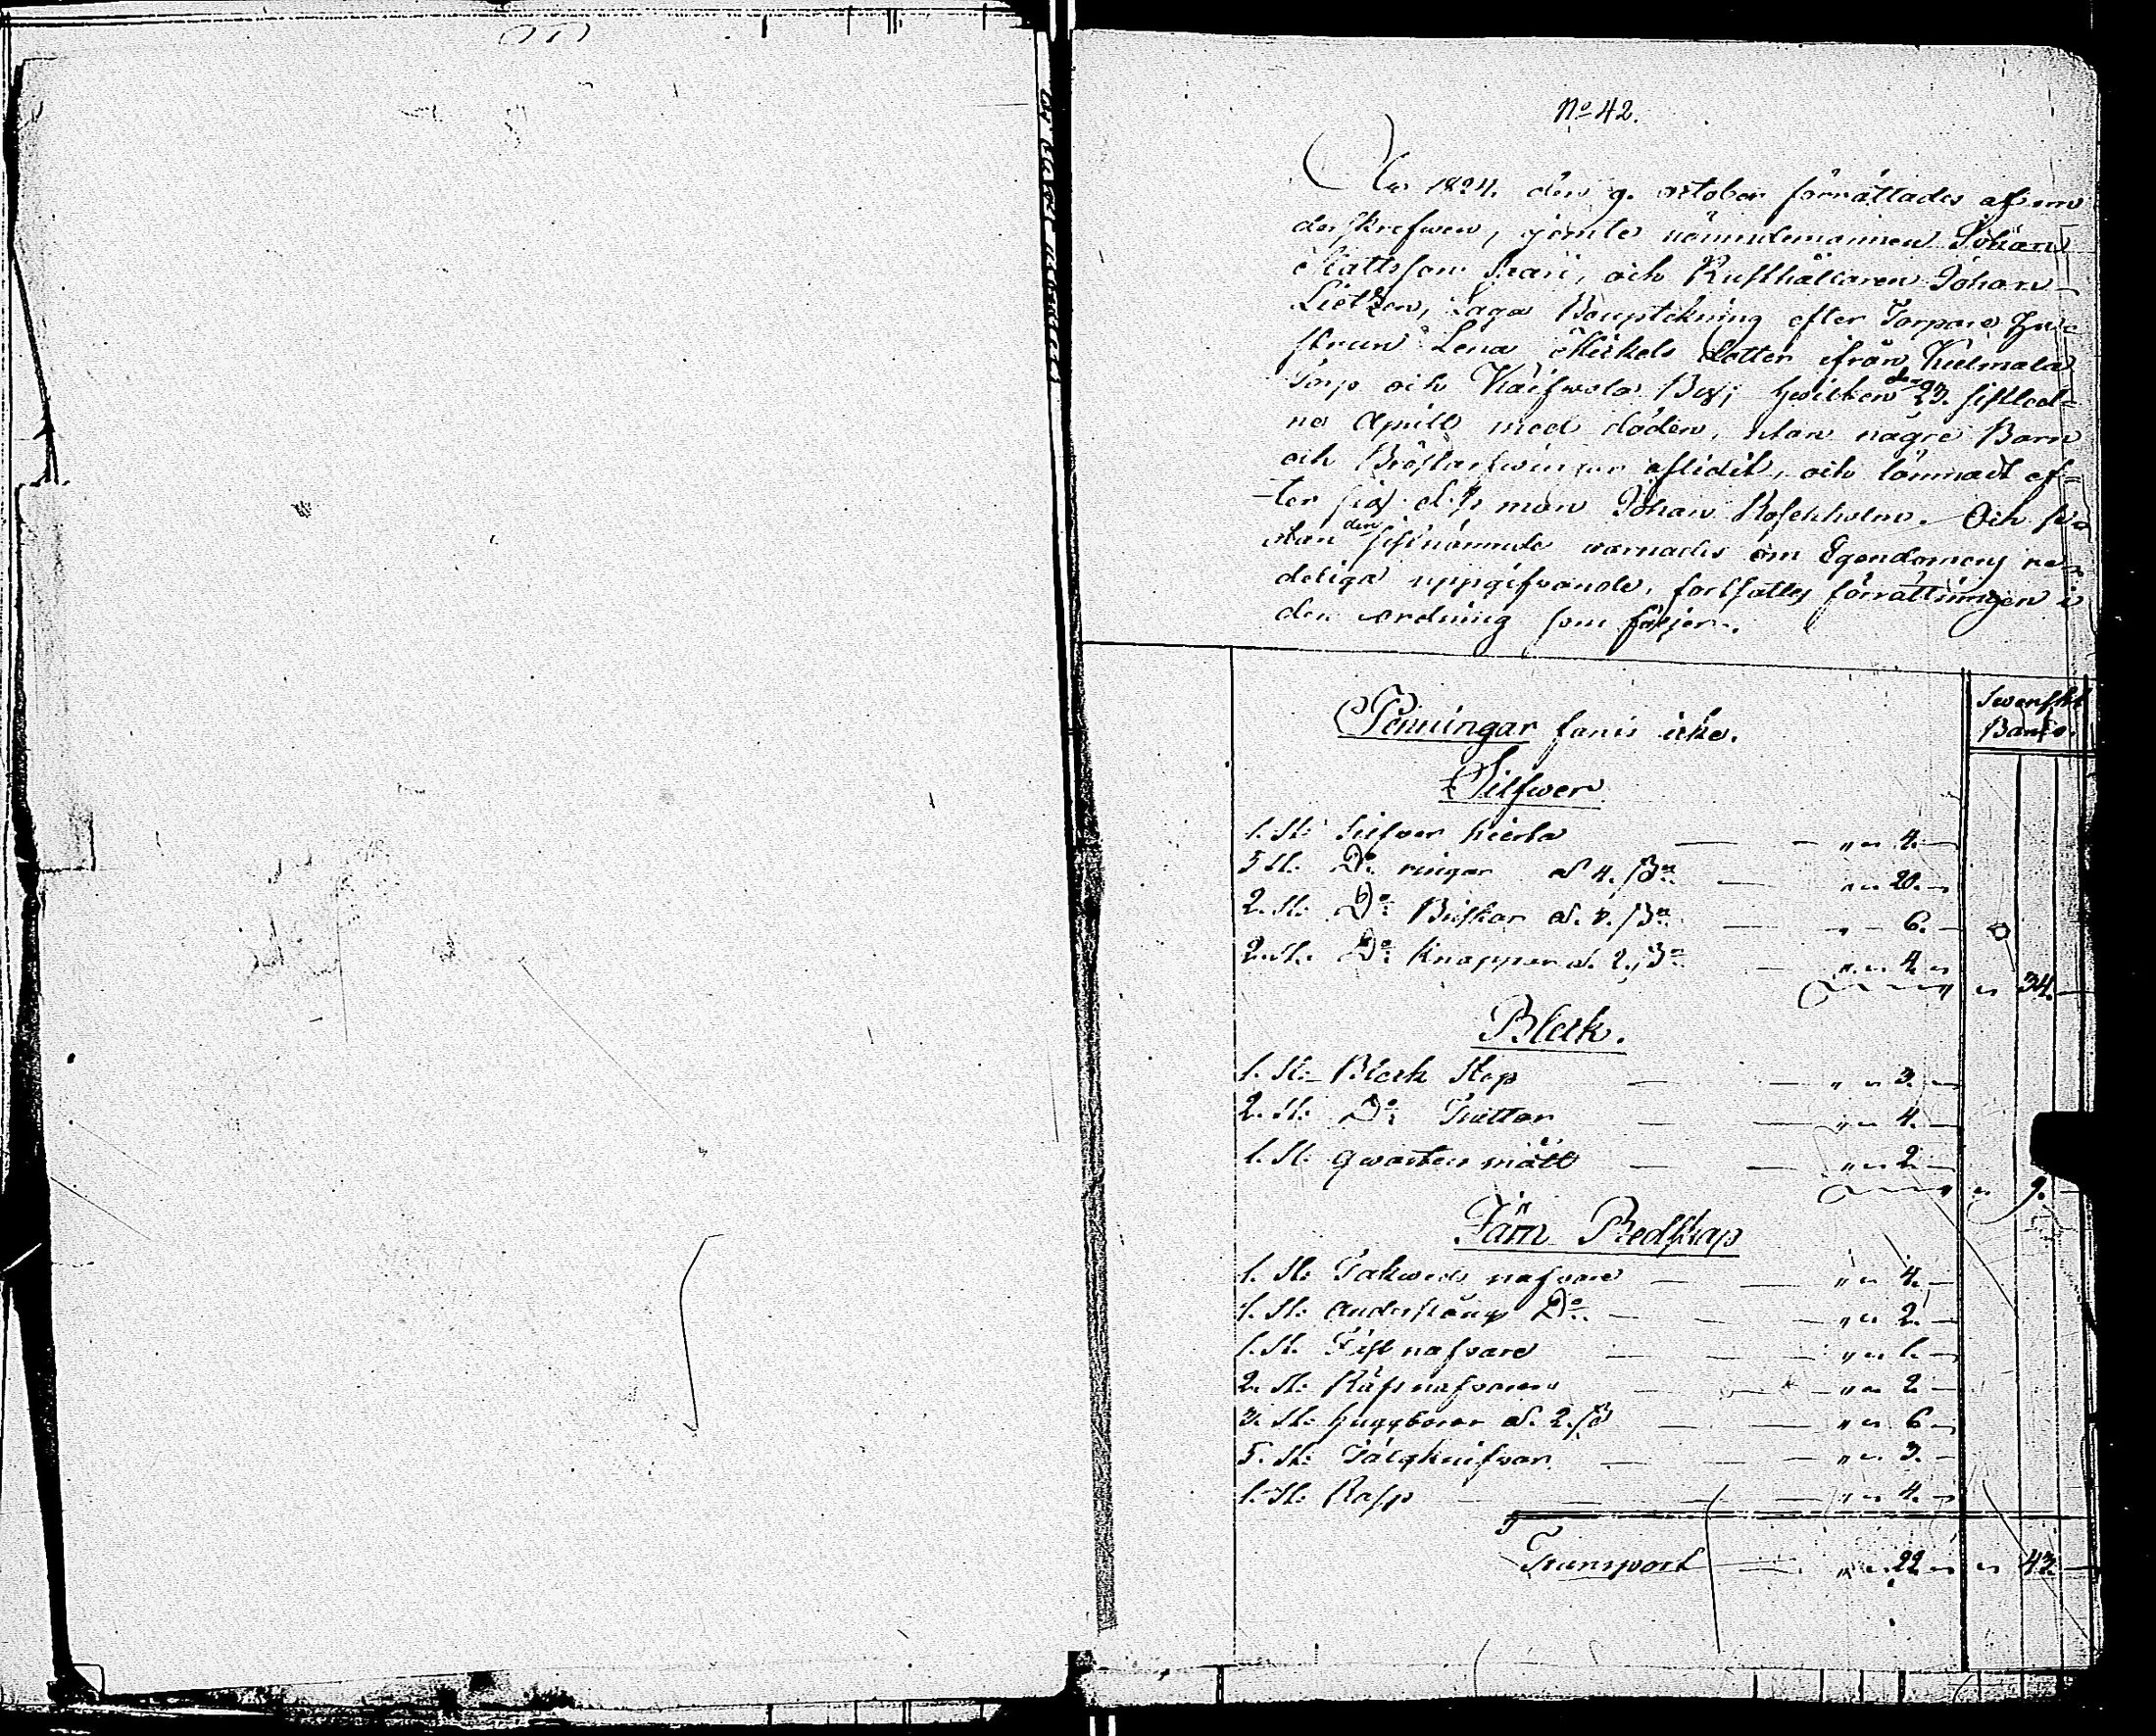 No 42.
År 1824. den 9. october förrättades af un
derskrefwen, jemte nämndemannen Johan
Mattsson och Rusthållaren Johan
Lietzen, Laga Bouptekning efter Torpare Hu-
strun Lena Mickels dotter ifrån Kulmala
Torp och By; hwilken den 23. sistled-
ne Aprill med döden, utan några Barn
och Bröstarfwingar aflidit, och lämnadt ef-
ter sig d:s man Johan Rosenholm. Och se-
dan den sistnämnde warnades om Egendomens re-
deliga uppgifvande, fortsattes förrättningen i
den ordning som följer.
Swenskt
Banko.
Penningar fanns icke.
Silfwer
1. St: Silfver hierta — „ „ 4. —
5 St: Do ringar a 4. ß — „ „ 20. —
2. St: Do a. ß — „ „ 6. —
2. St: Do Knappar a. 2. ß — „ „ 4. „
„ „ 34. —
Bleck.
1. St: Bleck Stop — — „ „ 3. —
2. St: Do Trattar — — „ „ 4. —
1. St: qwarters mått — — „ „ 2 —
„ „ 9. —
Järn Redskap
1. St: Takweds nafvare — — „ „ 4. —
1. St: Do — — „ „ 2. —
1. St: nafvare — — — „ „ 1. —
2. St: nafvare — — „ „ 2 —
3. St: huggborar a. 2. ß — — „ „ 6 —
5. St: Täljknifvar — — „ „ 3. —
1. St: Rasp — — — „ „ 4. —
Transport — — „ „ 22 „ „ 43. —